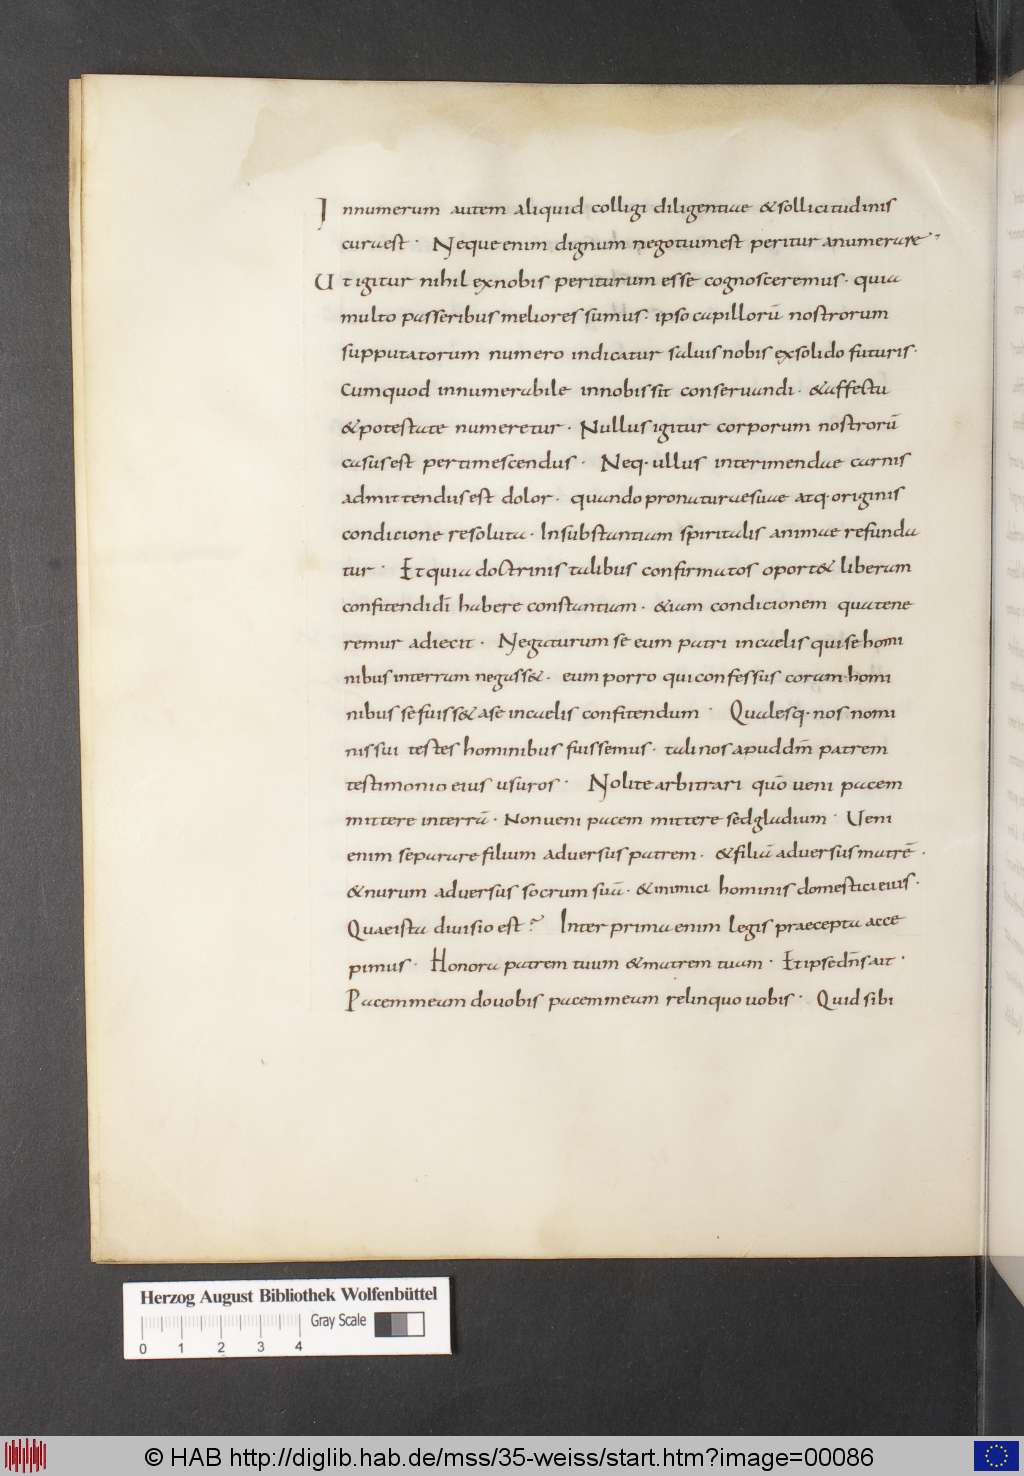 Innumerum autem aliquid colligi diligentiae & sollicitudinis
curaest · Nequeenim dignum negotiumest peritura numerare ·
Ut igitur nihil exnobis periturum esse cognosceremus · quia
multo passeribus meliores sumus · ipso capillorū nostrorum
supputatorum numero indicatur saluisnobis exsolido futuris ·
Cumquod innumerabile innobis sit conseruandi · &affectu
&potestate numeretur · Nullus igitur corporum nostrorū
casusest pertimescendus · Neq· ullus interimendae carnis
admittendusest dolor · quando pronaturaesuae atq· originis
condicione resoluta · Insubstantiam spiritalis animae refunda
tur · Et quia doctrinis talibus confirmatos oport& liberam
confitendidī habere constantiam · &iam condicionem qua tene
remur adiecit · Negaturum se eum patri incaelis qui se homi
nibus interram negass& · eum porro qui confessus coram homi
nibus se fuiss& a se incaelis confitendum · Qualesq· nos nomi
nis sui testes hominibus fuissemus · tali nos apud dm̄ patrem
testimonio eius usuros · Nolite arbitrari quō ueni pacem
mittere interrā · Non ueni pacem mittere sed gladium · Ueni
enim separare filium aduersus patrem · &filiā aduersus matrē ·
&nurum aduersus socrum suā · &inimici hominis domestici eius ·
Quae ista diuisio est ? Inter prima enim legis praecepta acce
pimus · Honora patrem tuum &matrem tuam · Et ipse dn̄s ait ·
Pacem meam do uobis pacem meam relinquo uobis · Quid sibi
Herzog August Bibliothek Wolfenbüttel
Gray Scale
0 1 2 3 4
© HAB http://diglib.hab.de/mss/35-weiss/start.htm?image=00086